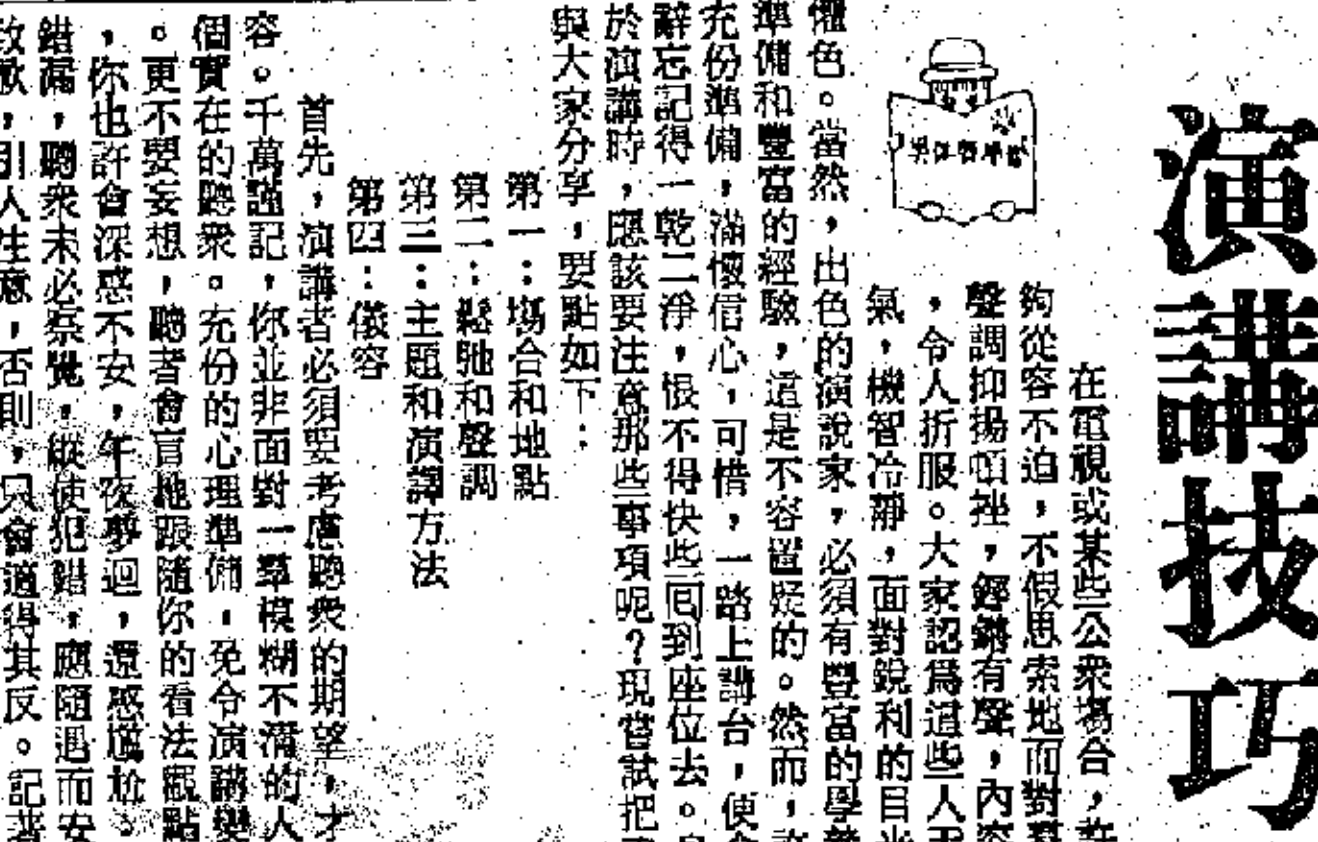 演講技巧
在電視或某些公衆場合，許
夠從容不迫，不假思索地面對羣
聲調抑揚頓挫，鏗鏘有聲，內容
，令人折服。大家認爲這些人天
氣，機智冷靜，面對銳利的目光
懼色。當然，出色的演說家，必須有豐富的學養
準備和豐富的經驗，這是不容置疑的。然而，許
充份準備，滿懷信心，可惜，一踏上講台，便
辭忘記得一乾二淨，恨不得快些回到座位去。
於演講時，應該要注意那些事項呢？現嘗試把
與大家分享，要點如下：
第一：場合和地點
第二：鬆馳和聲調
第三：主題和演譯方法
第四：儀容
首先，演講者必須要考慮聽衆的期望，才
容。千萬謹記，你並非面對一羣模糊不清的人
個實在的聽衆。充份的心理準備，免令演講變
。更不要妄想，聽者會盲地跟隨你的看法觀點
，你也許會深感不安，午夜夢迴，還感尷尬。
錯漏，聽衆未必察覺，縱使犯錯，應隨遇而安
致歉，引人注意，否則，只會適得其反。記着